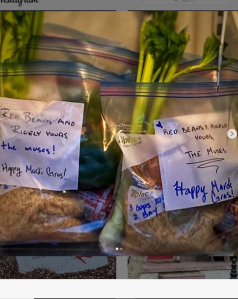 Instagram
Red Beans And
Ricely Yours
the muses!
Happy Mardi Gras!
Red Beans & Ricely
Yours
The Muses
Happy Mardi
Gras!
3 cups
2 Bay